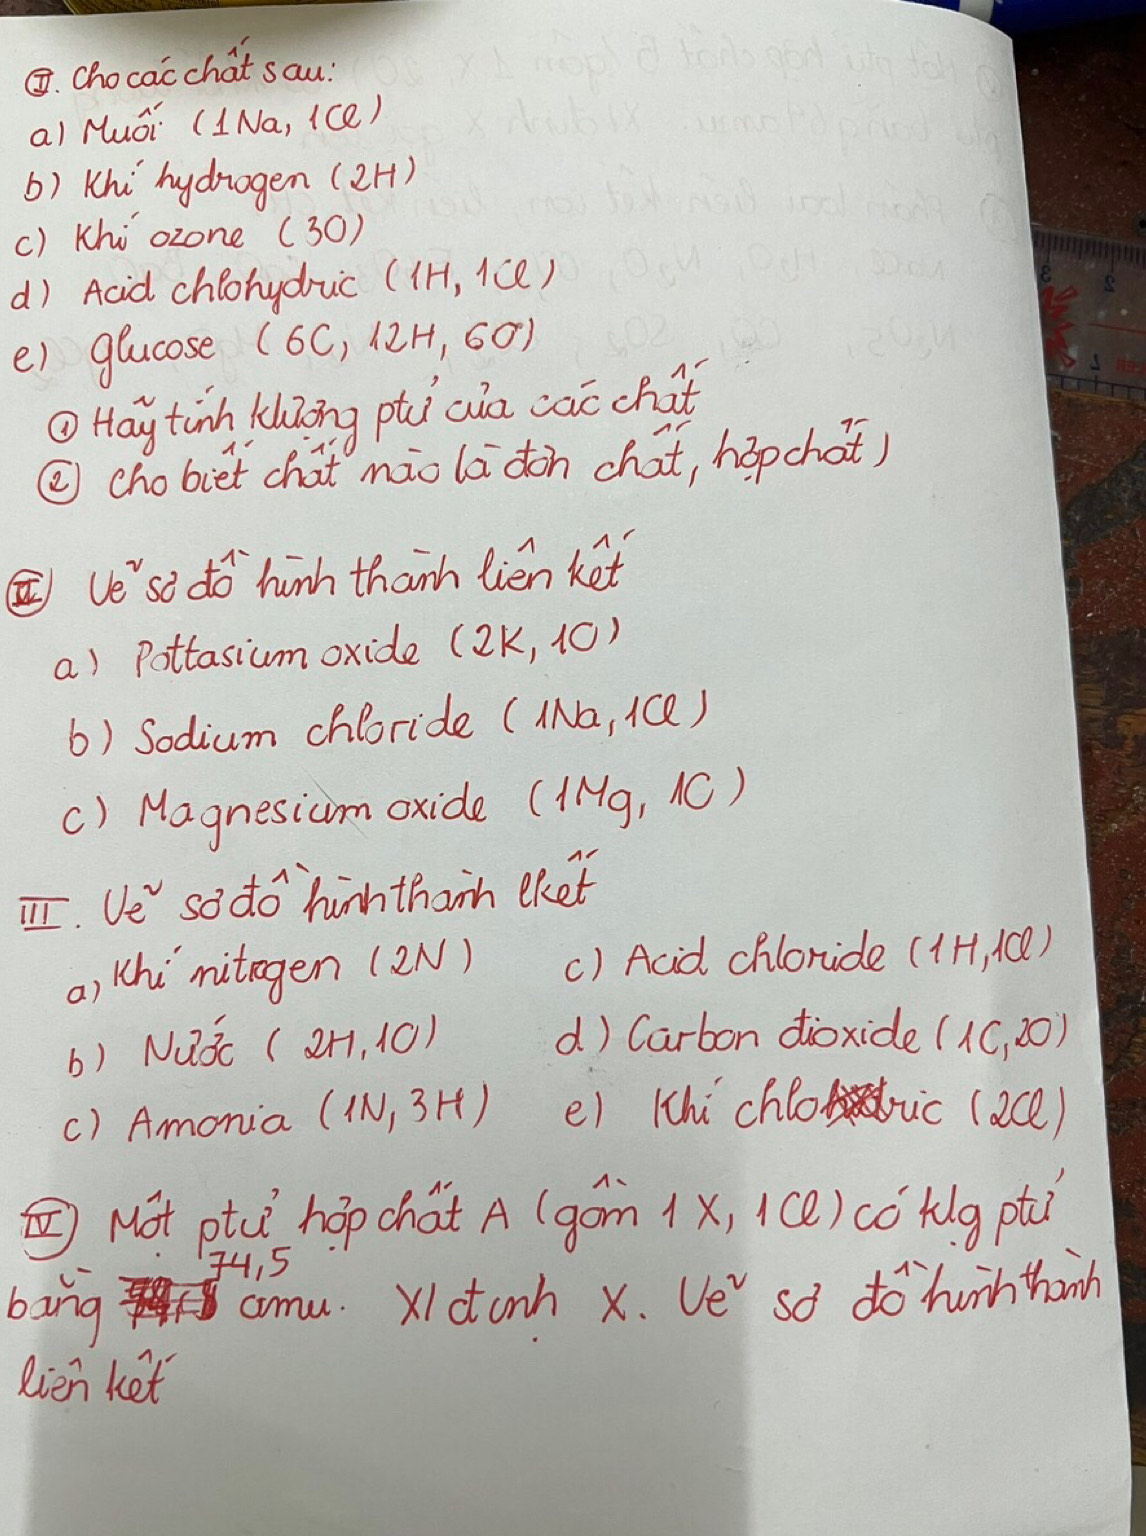 I. Cho các chất sau:
a) Muối (1Na, 1Cl)
b) Khí hydrogen (2H)
c) Khí ozone (3O)
d) Acid chlohydric (1H, 1Cl)
e) glucose (6C, 12H, 6O)
① Hãy tính klượng ptử của các chất
② Cho biết chất nào là đơn chất, hợp chất)
II) Vẽ sơ đồ hình thành liên kết
a) Pottasium oxide (2K, 1O)
b) Sodium chloride (1Na, 1Cl)
c) Magnesium oxide (1Mg, 1O)
III. Vẽ sơ đồ hình thành lkết
a, Khí nitrogen (2N)
b) Nước (2H, 1O)
c) Amonia (1N, 3H)
c) Acid chloride (1H, 1Cl)
d) Carbon dioxide (1C, 2O)
e) Khí chloric (2Cl)
IV) Một ptử hợp chất A (gồm 1 X, 1 Cl) có klg ptử
74,5
bằng amu. X/định X. Vẽ sơ đồ hình thành
liên kết